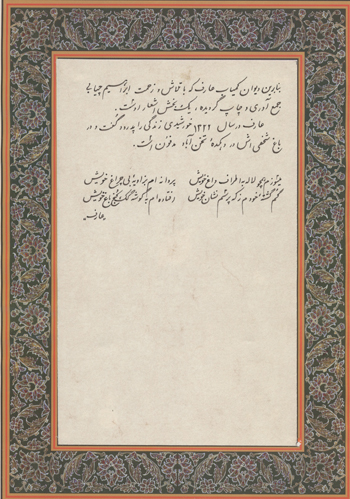 بنابرین دیوان کمیاب عارف که با تلاش و زحمت ابراهیم
جمع آوری و چاپ گردیده، یک بخش اشعار اوست.
عارف در سال ۱۳۲۲ خورشیدی زندگی را پدرود گفت و در
باغ شخصی اش در دهکدهٔ تخن آباد مدفون است.
میسوزم چو لاله به اطراف داغ خویش
پروانه ام به پای چراغ خویش
گم گشته خودم ز که پرسم نشان خویش
افتاده ام به گوشهٔ باغ خویش
عارف